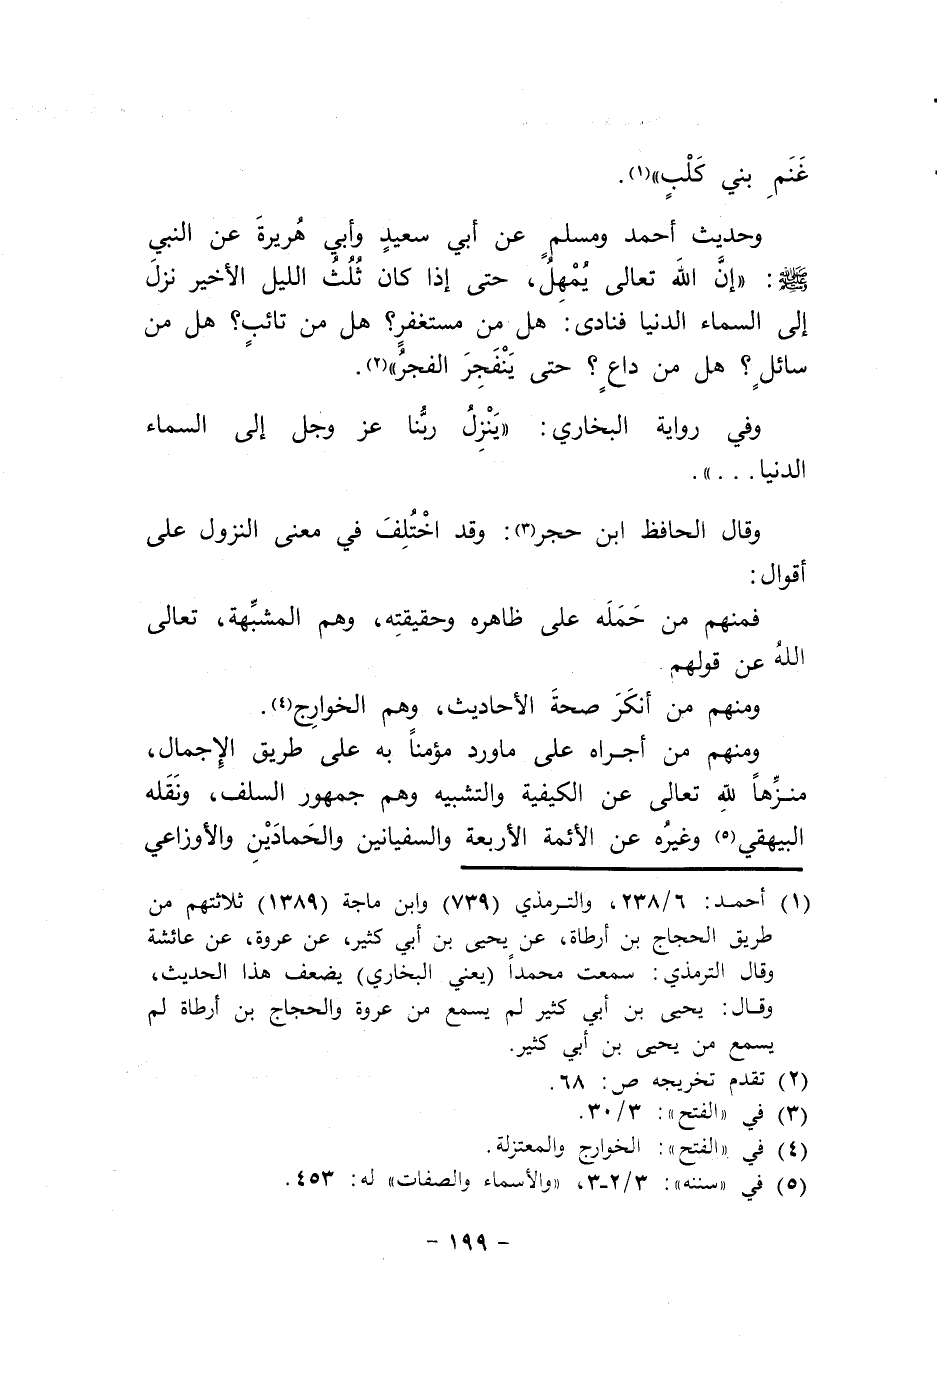 غَنَمِ بني كَلْبٍ»(١).
وحديث أحمد ومسلمٍ عن أبي سعيدٍ وأبي هُريرةَ عن النبي
ﷺ: «إنَّ اللهَ تعالى يُمْهِلُ، حتى إذا كان ثُلُثُ الليل الأخير نزلَ
إلى السماء الدنيا فنادى: هل من مستغفرٍ؟ هل من تائبٍ؟ هل من
سائلٍ؟ هل من داعٍ؟ حتى يَنْفَجِرَ الفجرُ»(٢).
وفي رواية البخاري: «يَنْزِلُ ربُّنا عز وجل إلى السماء
الدنيا...».
وقال الحافظ ابن حجر(٣): وقد اخْتُلِفَ في معنى النزول على
أقوال:
فمنهم من حَمَلَه على ظاهره وحقيقتِه، وهم المشبِّهة، تعالى
اللهُ عن قولهم
ومنهم من أنكَرَ صحةَ الأحاديث، وهم الخوارِج(٤).
ومنهم من أجراه على ماورد مؤمناً به على طريق الإِجمال،
منزِّهاً للهِ تعالى عن الكيفية والتشبيه وهم جمهور السلف، ونَقَله
البيهقي(٥) وغيرُه عن الأئمة الأربعة والسفيانين والحَمادَيْنِ والأوزاعي
(١) أحمد: ٢٣٨/٦، والترمذي (٧٣٩) وابن ماجة (١٣٨٩) ثلاثتهم من
طريق الحجاج بن أرطاة، عن يحيى بن أبي كثير، عن عروة، عن عائشة
وقال الترمذي: سمعت محمداً (يعني البخاري) يضعف هذا الحديث،
وقال: يحيى بن أبي كثير لم يسمع من عروة والحجاج بن أرطاة لم
يسمع من يحيى بن أبي كثير.
(٢) تقدم تخريجه ص: ٦٨.
(٣) في «الفتح»: ٣٠/٣.
(٤) في «الفتح»: الخوارج والمعتزلة.
(٥) في «سننه»: ٢/٣-٣، «والأسماء والصفات» له: ٤٥٣.
- ١٩٩ -